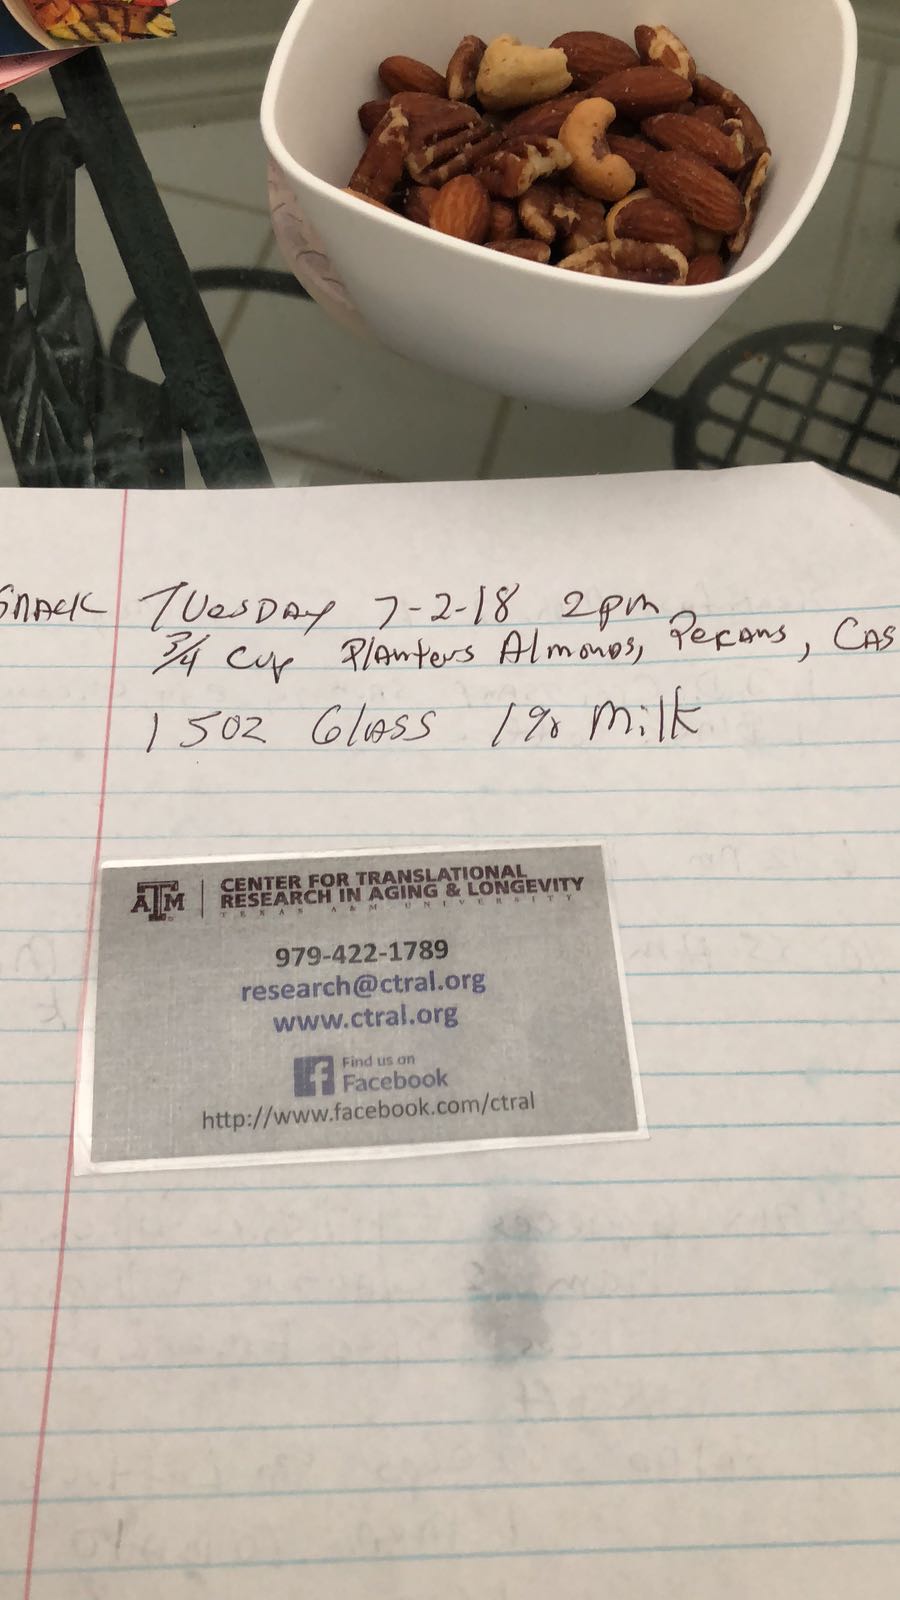 SNACK TUesDAy 7-2-18 2pm
3/4 Cup Planters Almonds, Pekans, CAS
1 5oz Glass 1% Milk
ATM
CENTER FOR TRANSLATIONAL
RESEARCH IN AGING & LONGEVITY
TEXAS A&M UNIVERSITY
979-422-1789
research@ctral.org
www.ctral.org
f Find us on
Facebook
http://www.facebook.com/ctral